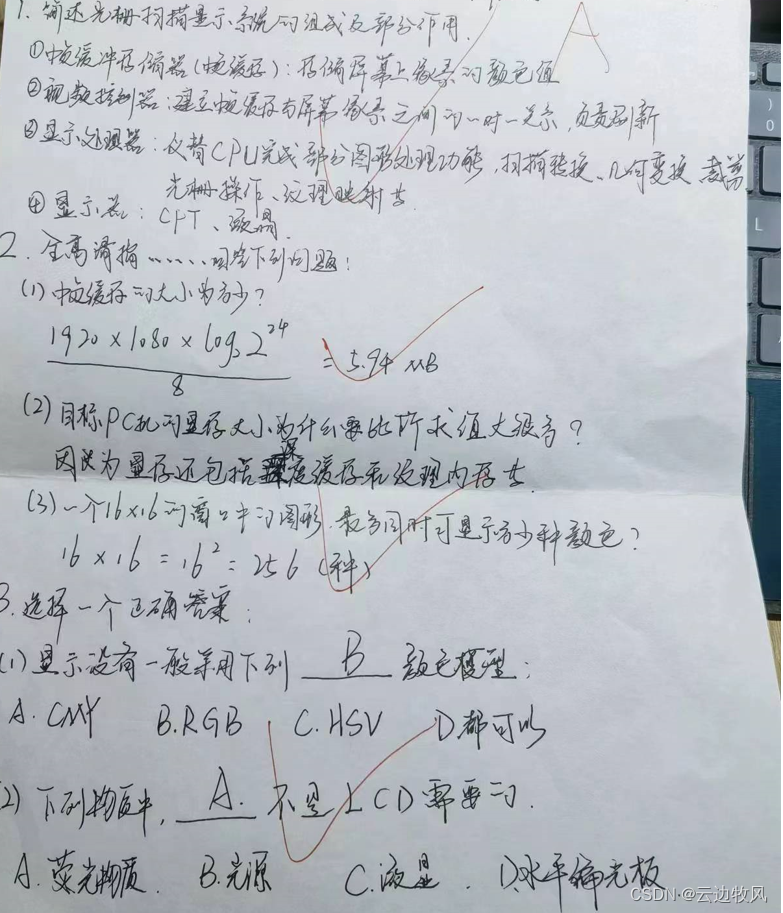 1. 简述光栅扫描显示系统的组成及部分作用.
A
①帧缓冲存储器(帧缓存):存储屏幕上像素的颜色值
②视频控制器:建立帧缓存与屏幕像素之间的一对一关系,负责刷新
③显示处理器:代替CPU完成部分图形处理功能,扫描转换、几何变换、裁剪
光栅操作、纹理映射等.
④显示器:CPT、液晶.
2. 全高清指……回答下列问题:
(1)帧缓存的大小为多少?
1920×1080×log₂2²⁴
8
=5.94 MB
(2)目标PC机的显存大小为什么要比所求值大很多?
因为显存还包括深度缓存和纹理内存等.
(3)一个16×16的窗口中的图形,最多同时可显示多少种颜色?
16×16=16²=256(种)
3.选择一个正确答案:
(1)显示设备一般采用下列 B 颜色模型:
A. CMY B.RGB C.HSV D.都可以
2) 下列物质中, A. 不是LCD需要的.
A.荧光物质. B.光源 C.液晶. D.水平偏光板
CSDN @云边牧风